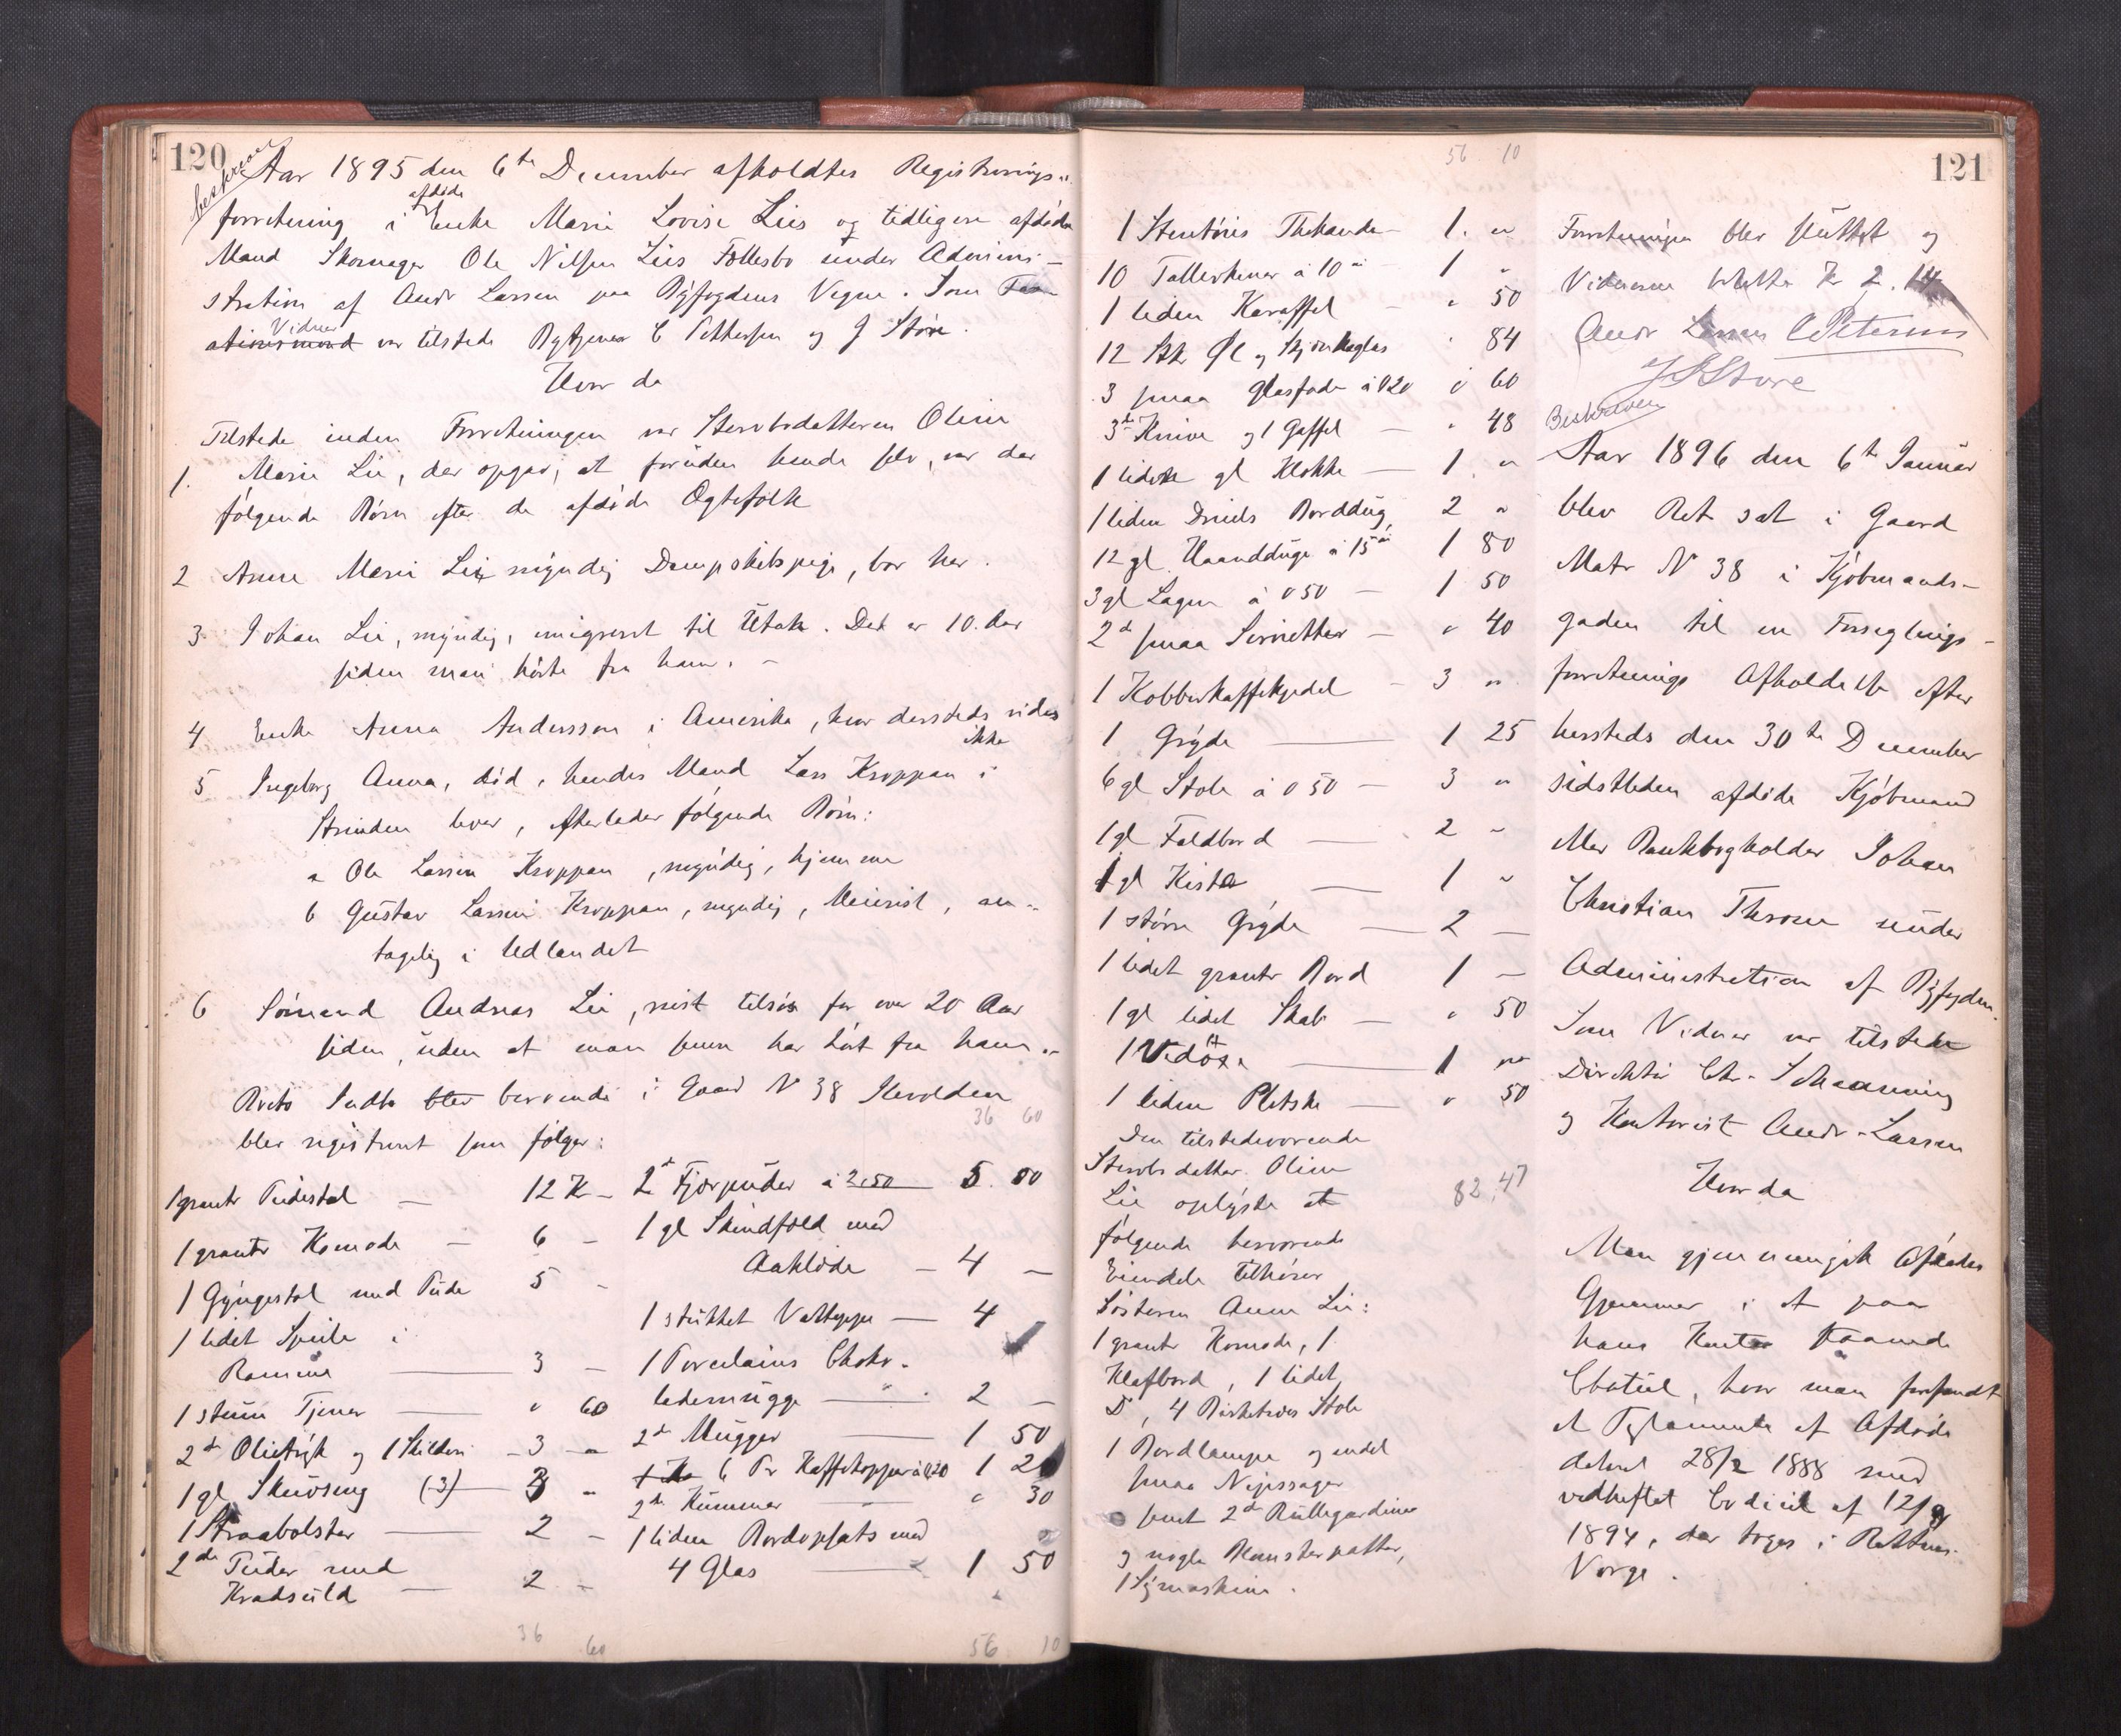 120
beskreven
Aar 1895 den 6te December afholdtes Registrerings-
forretning i afdøde Enke Marie Lovise Lies og tidligere afdøde
Mand Skomager Ole Nilsen Lies Fællesbo under Admini-
stration af Andr Larssen paa Byfogdens Vegne. Som
Vidner var tilstede C Pettersen og J Støre.
Hvor da
Tilstede under Forretningen var Stervbodatteren Oline
1. Marie Lie, der opgav, at foruden hende selv, var der
følgende Børn efter de afdøde Ægtefolk
2 Anne Marie Lie myndig Dampskibspige, bor her.
3 Johan Lie, myndig, emigreret til Utah. Det er 10. Aar
siden man hørte fra ham. -
4 Enke Anna Andersson i Amerika, hvor dersteds vides
ikke
5 Ingeborg Anna, død, hendes Mand Lars Kroppan i
Strinden lever, efterlader følgende Børn:
a Ole Larssen Kroppan, myndig, hjemme
b Gustav Larssen Kroppan, myndig, Meierist, an-
tagelig i Udlandet
6 Sømand Andreas Lie, reist tilsøs for over 20 Aar
siden, uden at man senere har hørt fra ham.
Boets Indbo blev beroende i Gaard N 38 Ilevolden
36 60
blev registreret som følger:
1 grantr Pidestal — 12 Kr -
1 grantr Komode — 6 -
1 Gyngestol med Pude 5 -
1 lidet Speile i
Ramme — 3 -
1 stum Tjener — " 60
2de Olietryk og 1 Skilderi - 3 "
1 gl Skuvseng (-3) — 3 "
1 Straabolster — 2 -
2de Puder med
Kradsuld — 2 -
36 60
2de Fjærpuder à 2.50 — 5. 00
1 gl Skindfeld med
Aaklæde — 4 —
1 stukket Vatteppe — 4
1 Porcelains Choko-
lademugge — 2 —
2de Mugger — 1 50
6 Pr Kaffekopper à 0.20 1 20
2de Kummer " 30
1 liden Bordopsats med
4 Glas — 1 50
56 10
56 10
121
1 Stentøies Thekande 1. "
10 Tallerkener à 10 ø 1 "
1 liden Karaffel — " 50
12 Stk Øl og Skjænkeglas " 84
3 smaa Glasfade à 020 " 60
3de Knive og 1 Gaffel — " 48
1 liden gl Klokke — 1 "
1 liden Dreiels Borddug, 2 "
12 gl. Haandduge à 15 ø 1 80
3 gl Lagen à 0 50 — 1 50
2de smaa Servietter — " 40
1 Kobberkaffekjedel - 3 "
1 Gryde — 1 25
6 gl Stole à 0 50 — 3 "
1 gl Foldbord — 2 "
1 gl Kiste — 1 "
1 større Gryde — 2 —
1 lidet grantr Bord 1 —
1 gl lidet Skab — " 50
1 Vedøxe — 1 "
1 liden Pletske — " 50
Den tilstedeværende
Stervbodatter Oline
Lie oplyste at 82,47
følgende herværende
Eiendele tilhører
Søsteren Anne Lie:
1 grantr Komode, 1
Klafbord, 1 lidet
D, 4 Birketræs Stole
1 Bordlampe og endel
smaa Nipssager
samt 2de Rullegardiner
og nogle Blomsterpotter,
1 Symaskine.
Forretningen blev sluttet og
Vidnerne betalte Kr 2.14
Andr Larssen CPettersen
J Støre
Beskreven
Aar 1896 den 6te Januar
blev Ret sat i Gaard
Matr N 38 i Kjøbmands-
gaden til en Forseglings-
forretnings Afholdelse efter
hersteds den 30te December
sidstleden afdøde Kjøbmand
Johan
Christian Thrane under
Administration af Byfogden.
Som Vidner var tilstede
Direktør Chr. Schanning
og Kontorist Andr. Larssen
Hvor da
Man gjennemgik Afdødes
Gjemmer i et paa
hans Kontor staaende
Chatul, hvor man forefandt
et Testamente af Afdøde
dateret 28/2 1888 med
vedheftet Codicil af 12/9
1894, der toges i Rettens
Værge.